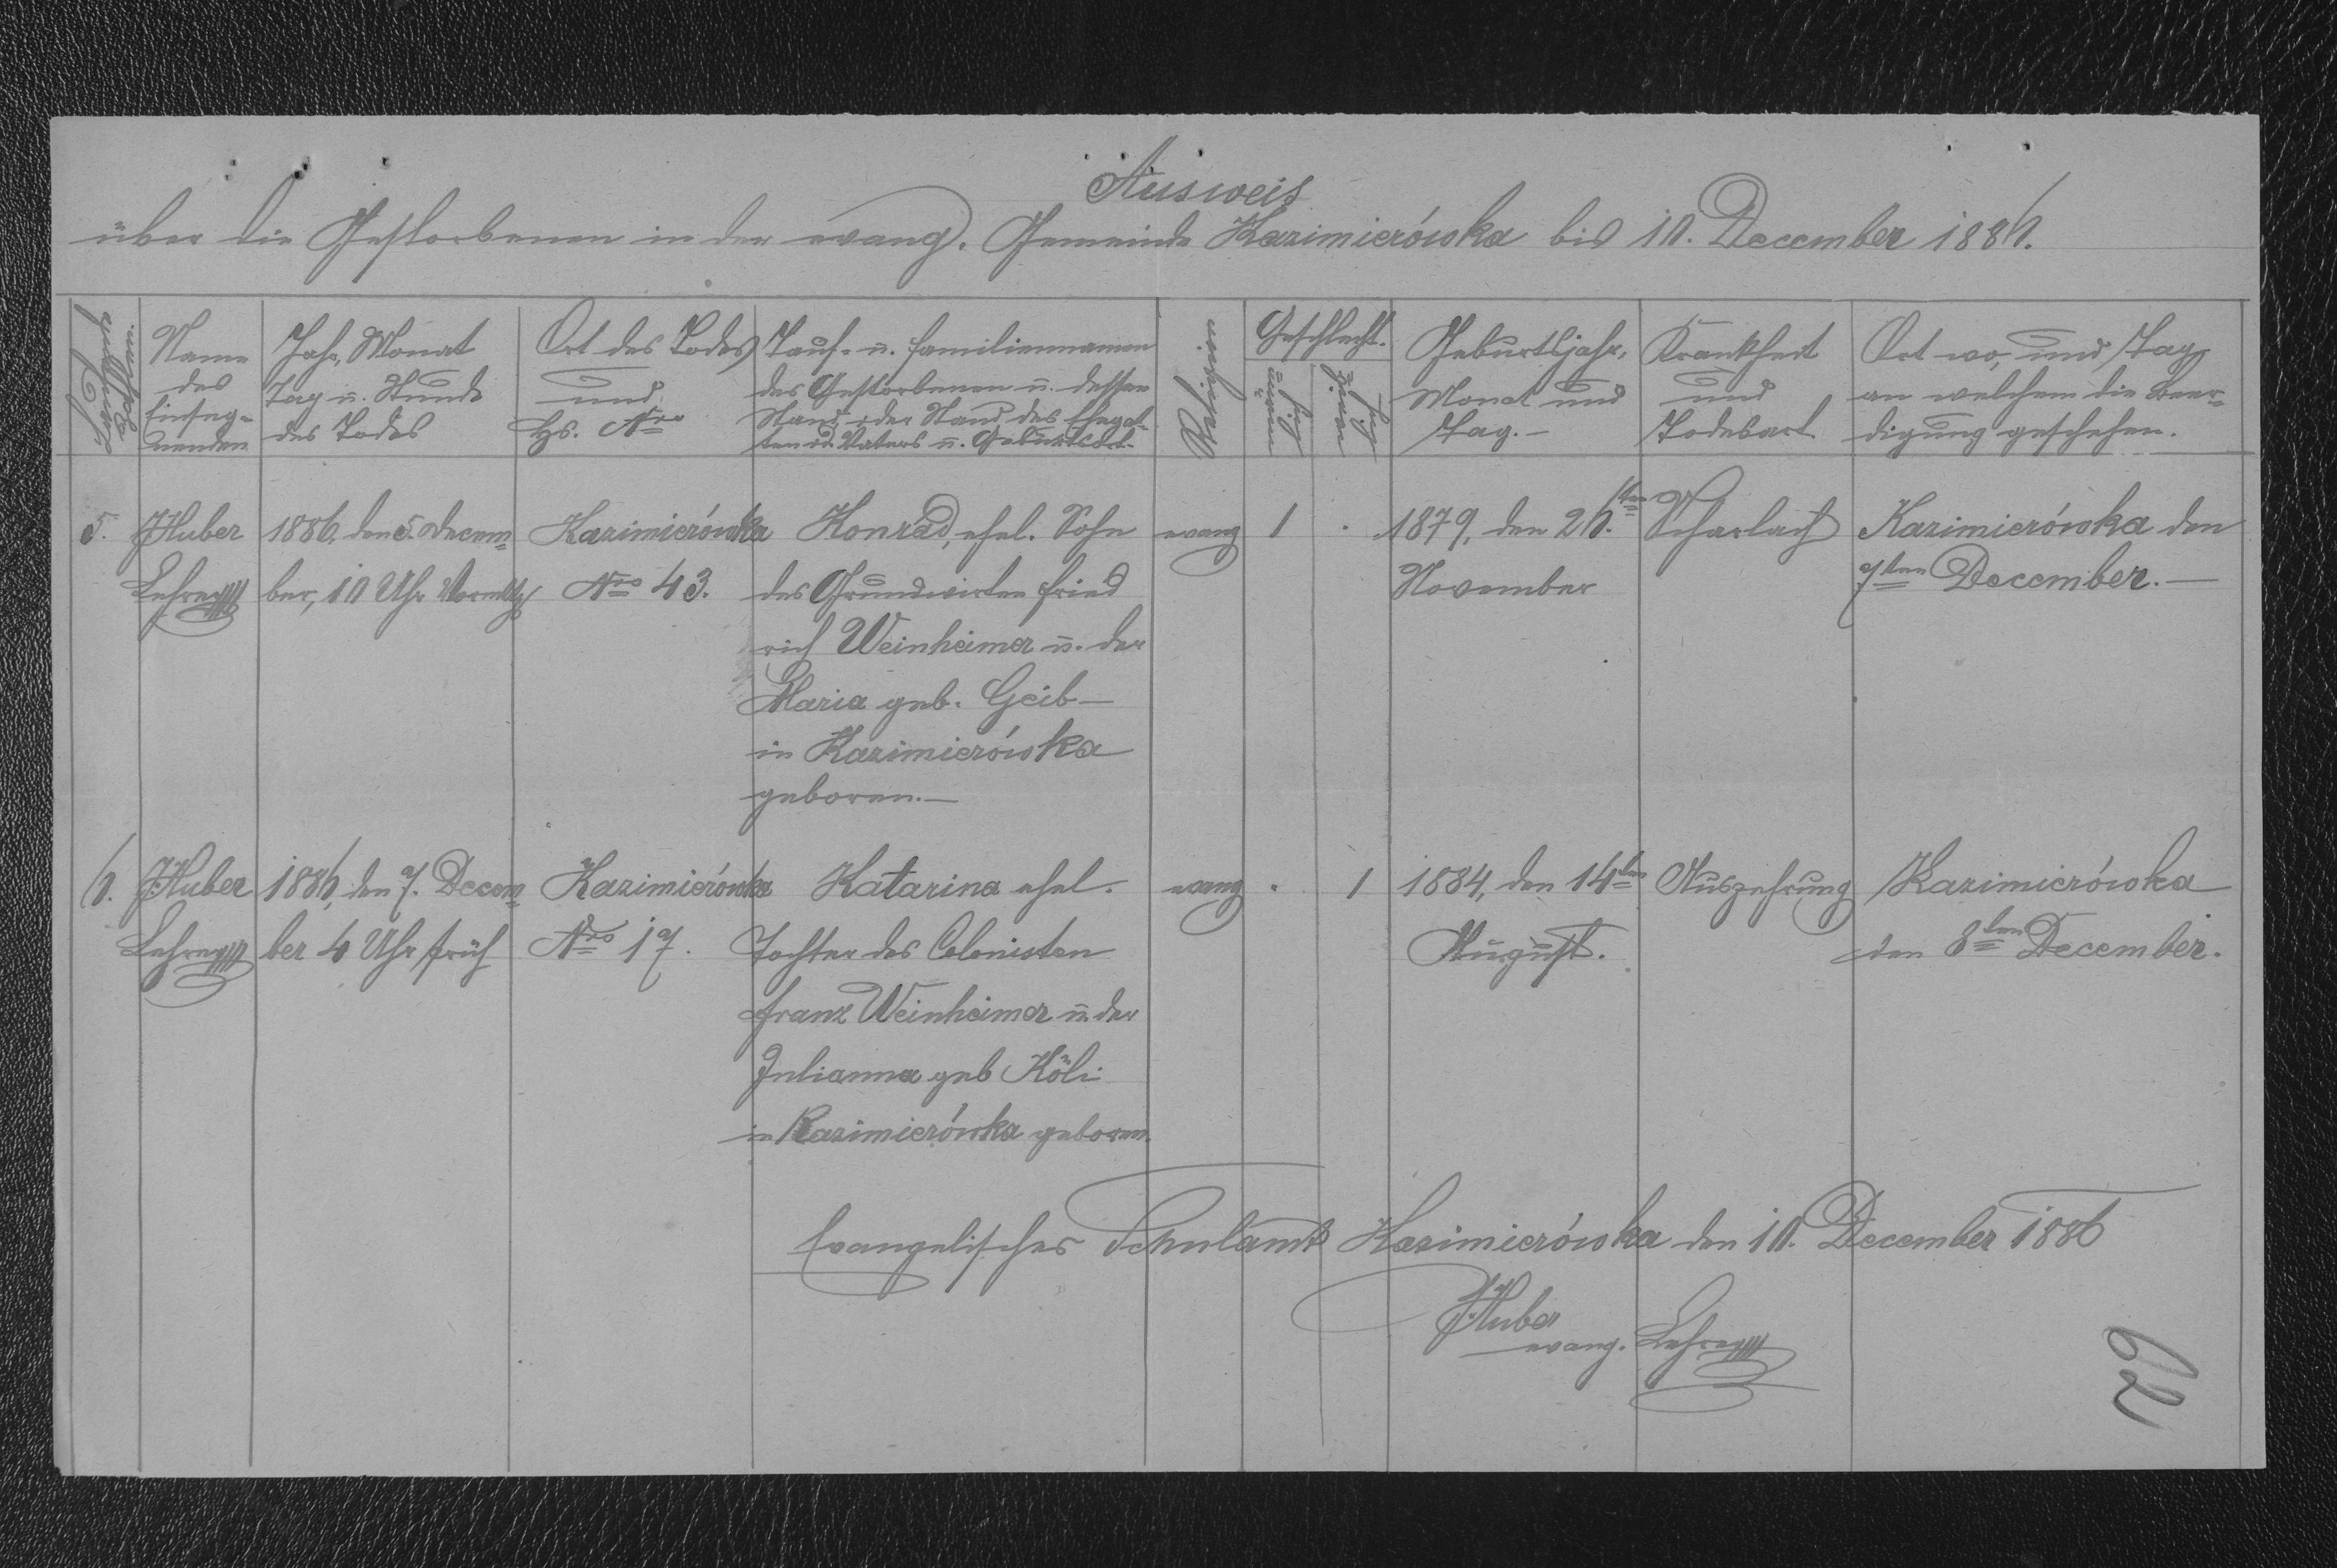 Ausweis
über die Gestorbenen in der evang. Gemeinde Kazimierówka bis 10. December 1886.
Name
des
Einseg-
nenden
Jahr, Monat
Tag u. Stunde
des Todes
Ort des Todes
und
Hs. Nro
Tauf- u. Familiennamen
des Gestorbenen u. dessen
Stand oder Stand des Ehegat-
ten od. Vaters u. Geburtsort.
Religion
Geschlecht.
männlich
weiblich
Geburtsjahr,
Monat und
Tag.-
Krankheit
und
Todesart
Ort wo, und Tag
an welchem die Beer-
digung geschehen.
5. JHuber 1886, den 5. Decem- Kazimierówka Konrad, ehel. Sohn evang 1 . 1879, den 26.ten Scharlach Kazimierówka den
Lehrer ber, 10 Uhr Vormittg Nro 43. des Grundwirten Fried November 7ten December.-
rich Weinheimer u. der
Maria geb. Geib-
in Kazimierówka
geboren.-
6. JHuber 1886, den 7. Decem- Kazimierówka Katarina ehel. evang . 1 1884, den 14ten Auszehrung Kazimierówka
Lehrer ber 4 Uhr früh Nro 17. Tochter des Colonisten August. den 8ten December.
Franz Weinheimer u. der
Julianna geb Köli
in Kazimierówka geboren.
Evangelisches Schulamt Kazimierówka den 10. December 1886
JHuber
evang. Lehrer
62